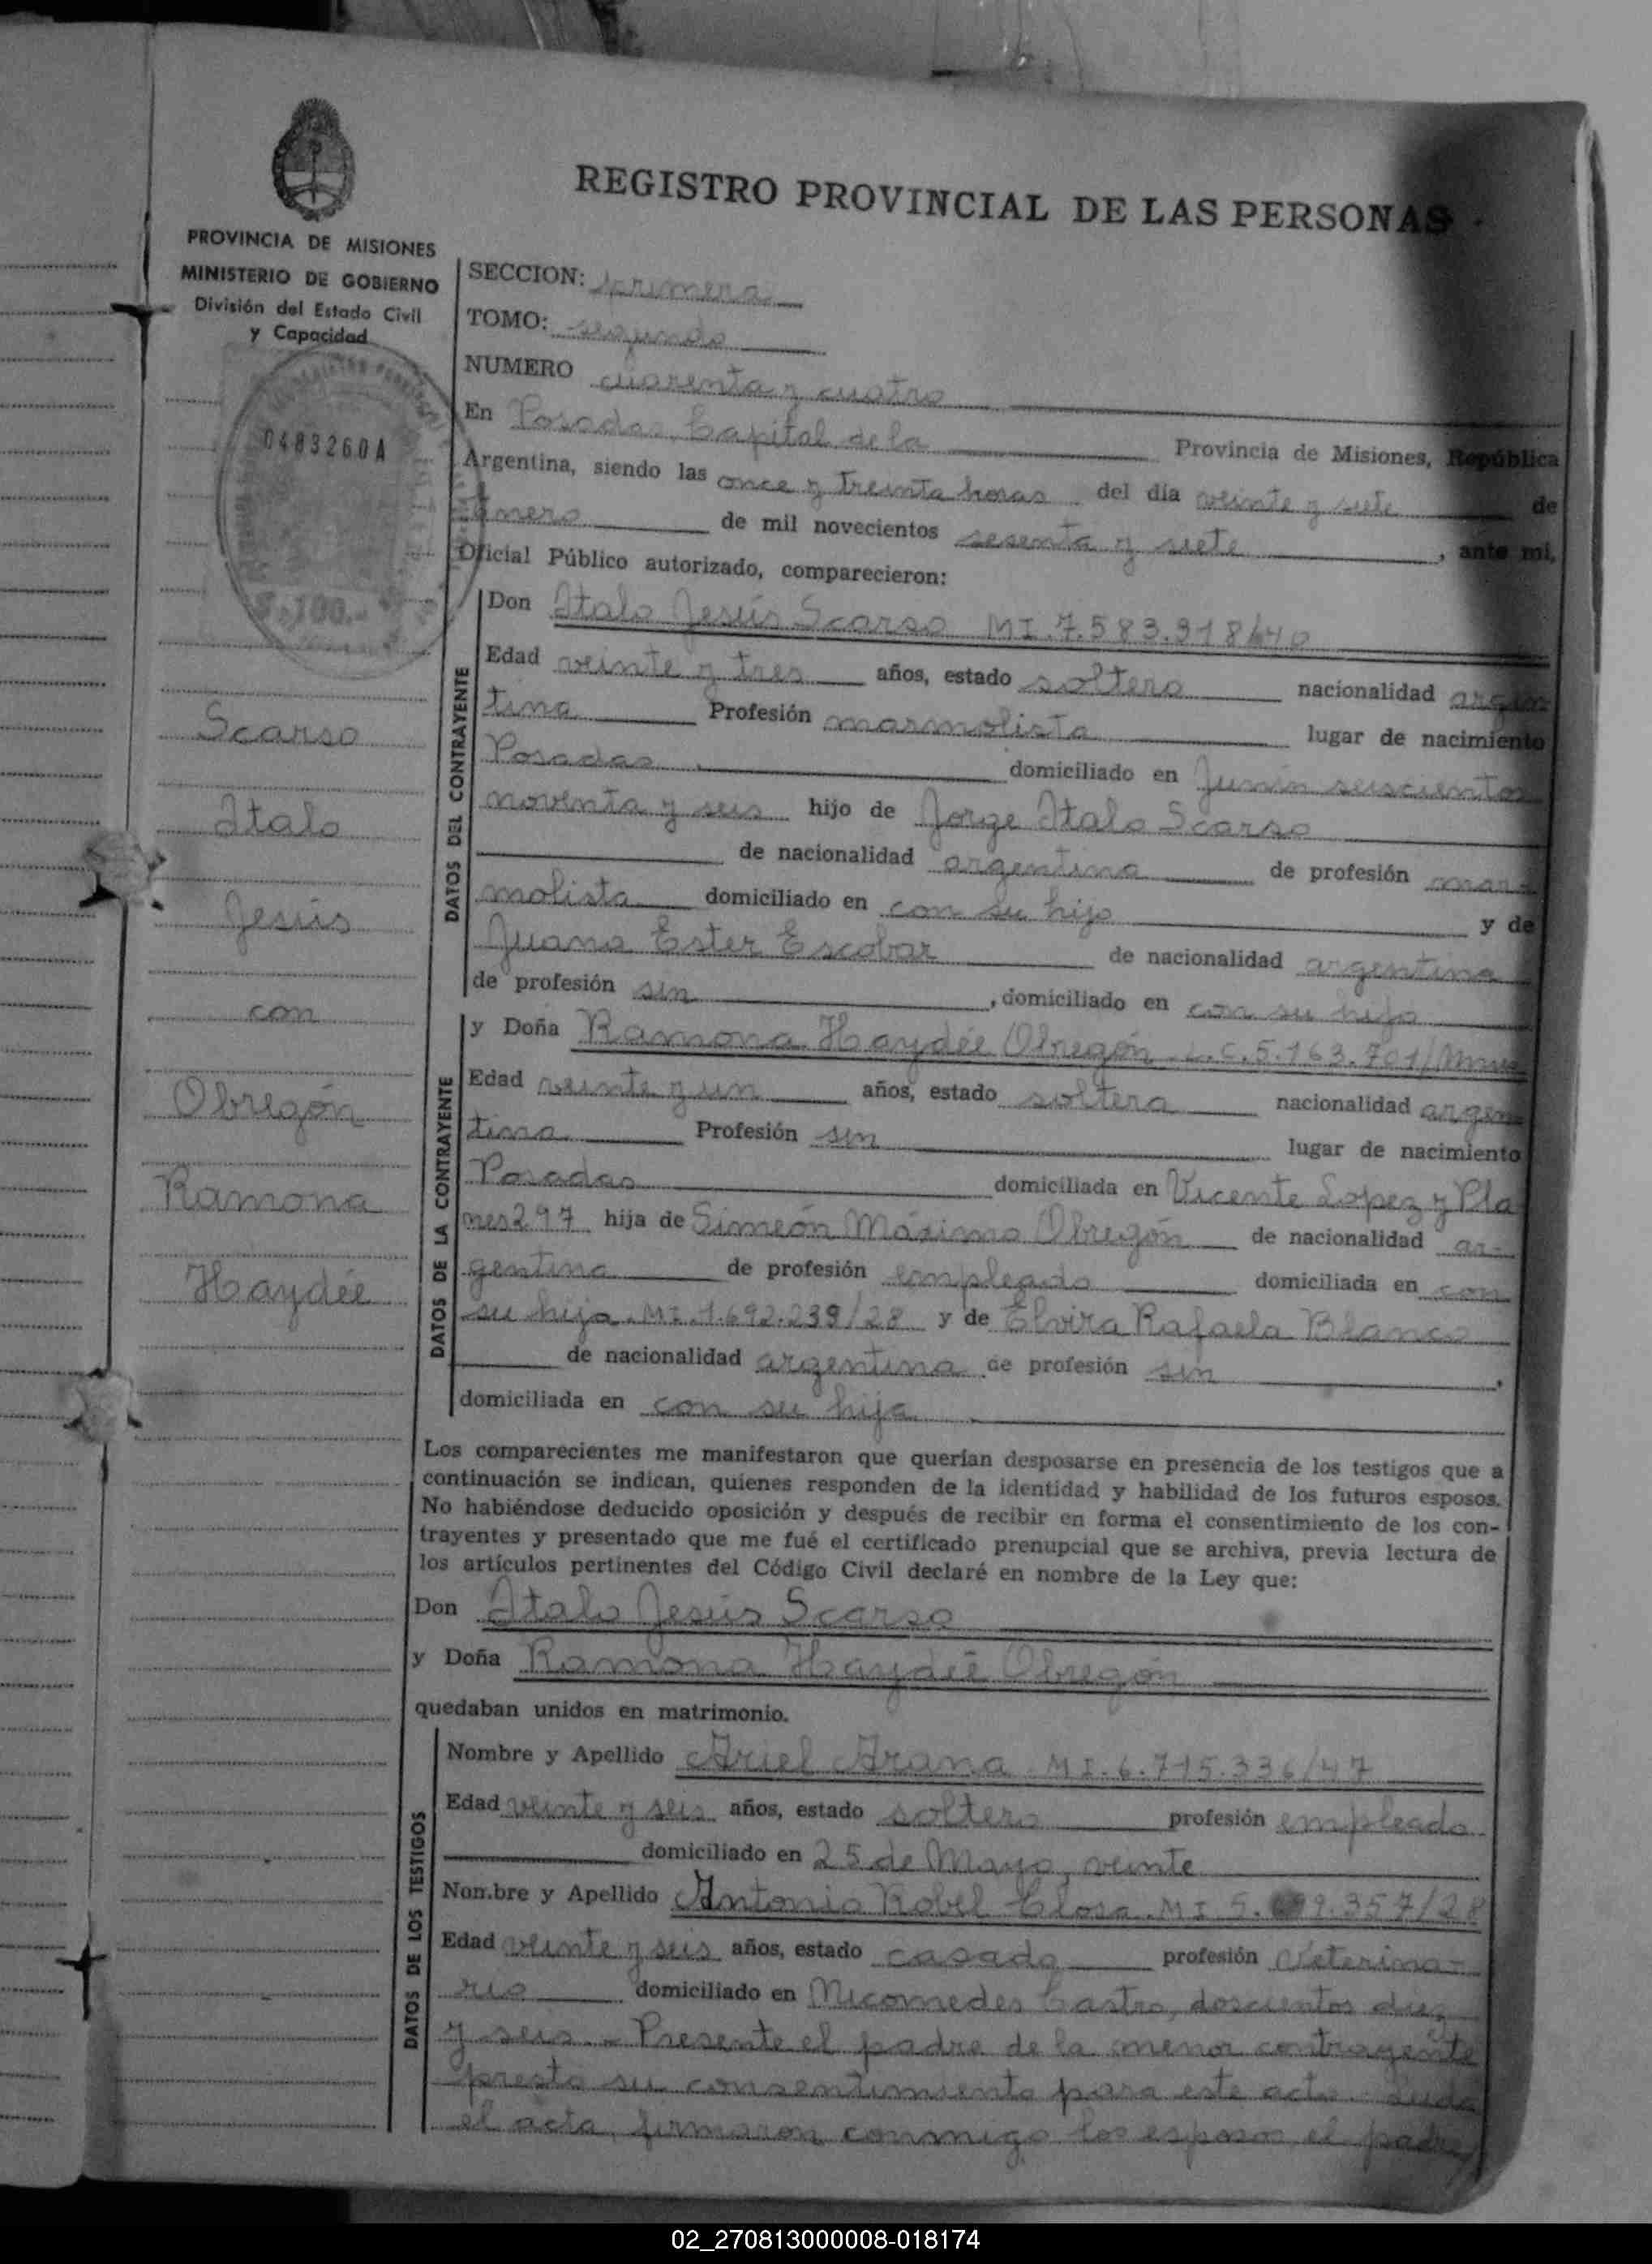 REGISTRO PROVINCIAL DE LAS PERSONAS
PROVINCIA DE MISIONES
MINISTERIO DE GOBIERNO
División del Estado Civil
y Capacidad
0483260A
$.100.-
Scarso
Italo
Jesús
con
Obregón
Ramona
Haydée
SECCION: primera
TOMO: segundo
NUMERO cuarenta y cuatro
En Posadas, Capital de la Provincia de Misiones, República
Argentina, siendo las once y treinta horas del día veinte y siete de
Enero de mil novecientos sesenta y siete, ante mi,
Oficial Público autorizado, comparecieron:
DATOS DEL CONTRAYENTE
Don Italo Jesús Scarso MI.7.583.918/40
Edad veinte y tres años, estado soltero nacionalidad argen
tina Profesión marmolista lugar de nacimiento
Posadas domiciliado en Junín seiscientos
noventa y seis hijo de Jorge Italo Scarso
de nacionalidad argentina de profesión mar-
molista domiciliado en con su hijo y de
Juana Ester Escobar de nacionalidad argentina
de profesión sin, domiciliado en con su hijo
DATOS DE LA CONTRAYENTE
y Doña Ramona Haydée Obregón L.C.5.163.701/
Edad veinte y un años, estado soltera nacionalidad argen
tina Profesión sin lugar de nacimiento
Posadas domiciliada en Vicente Lopez y Pla
nes 297 hija de Simeón Máximo Obregón de nacionalidad ar-
gentina de profesión empleado domiciliada en con
su hija. MI.1.692.239/28 y de Elvira Rafaela Blanco
de nacionalidad argentina de profesión sin,
domiciliada en con su hija
Los comparecientes me manifestaron que querían desposarse en presencia de los testigos que a
continuación se indican, quienes responden de la identidad y habilidad de los futuros esposos.
No habiéndose deducido oposición y después de recibir en forma el consentimiento de los con-
trayentes y presentado que me fué el certificado prenupcial que se archiva, previa lectura de
los artículos pertinentes del Código Civil declaré en nombre de la Ley que:
Don Italo Jesús Scarso
y Doña Ramona Haydée Obregón
quedaban unidos en matrimonio.
DATOS DE LOS TESTIGOS
Nombre y Apellido Ariel Arana MI.6.715.336/47
Edad veinte y seis años, estado soltero profesión empleado
domiciliado en 25 de Mayo, veinte
Nombre y Apellido Antonio Robel Closa. MI 5. 357/28
Edad veinte y seis años, estado casado profesión Veterina-
rio domiciliado en Nicomedes Castro, doscientos diez
y seis.- Presente el padre de la menor contrayente
presta su consentimiento para este acto. Leída
el acta, firmaron conmigo los esposos, el padre
02_270813000008-018174